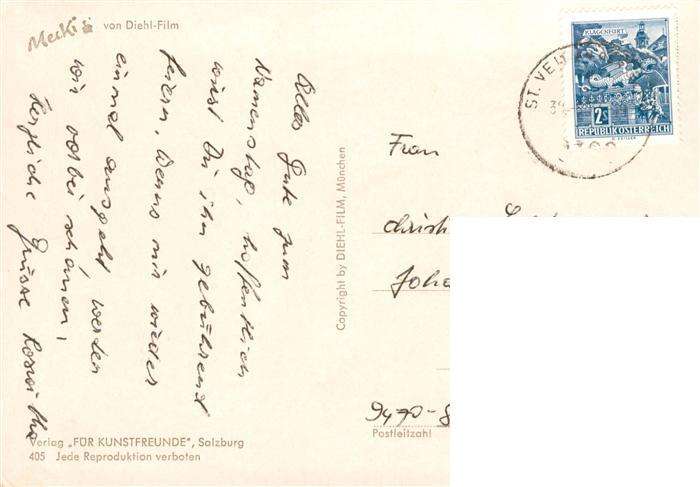 Mecki von Diehl-Film
Alles Gute zum
Namenstag, hoffentlich
wirst Du ihn gebührend
feiern. Wenns mir wieder
einmal ausgeht werden
wir vorbei schauen,
Herzliche Grüsse Roswitha
Verlag „FÜR KUNSTFREUNDE", Salzburg
405 Jede Reproduktion verboten
Copyright by DIEHL-FILM, München
KLAGENFURT
2S
REPUBLIK ÖSTERREICH
ST. VEIT
Frau
Christ
Joha
9470-S
Postleitzahl